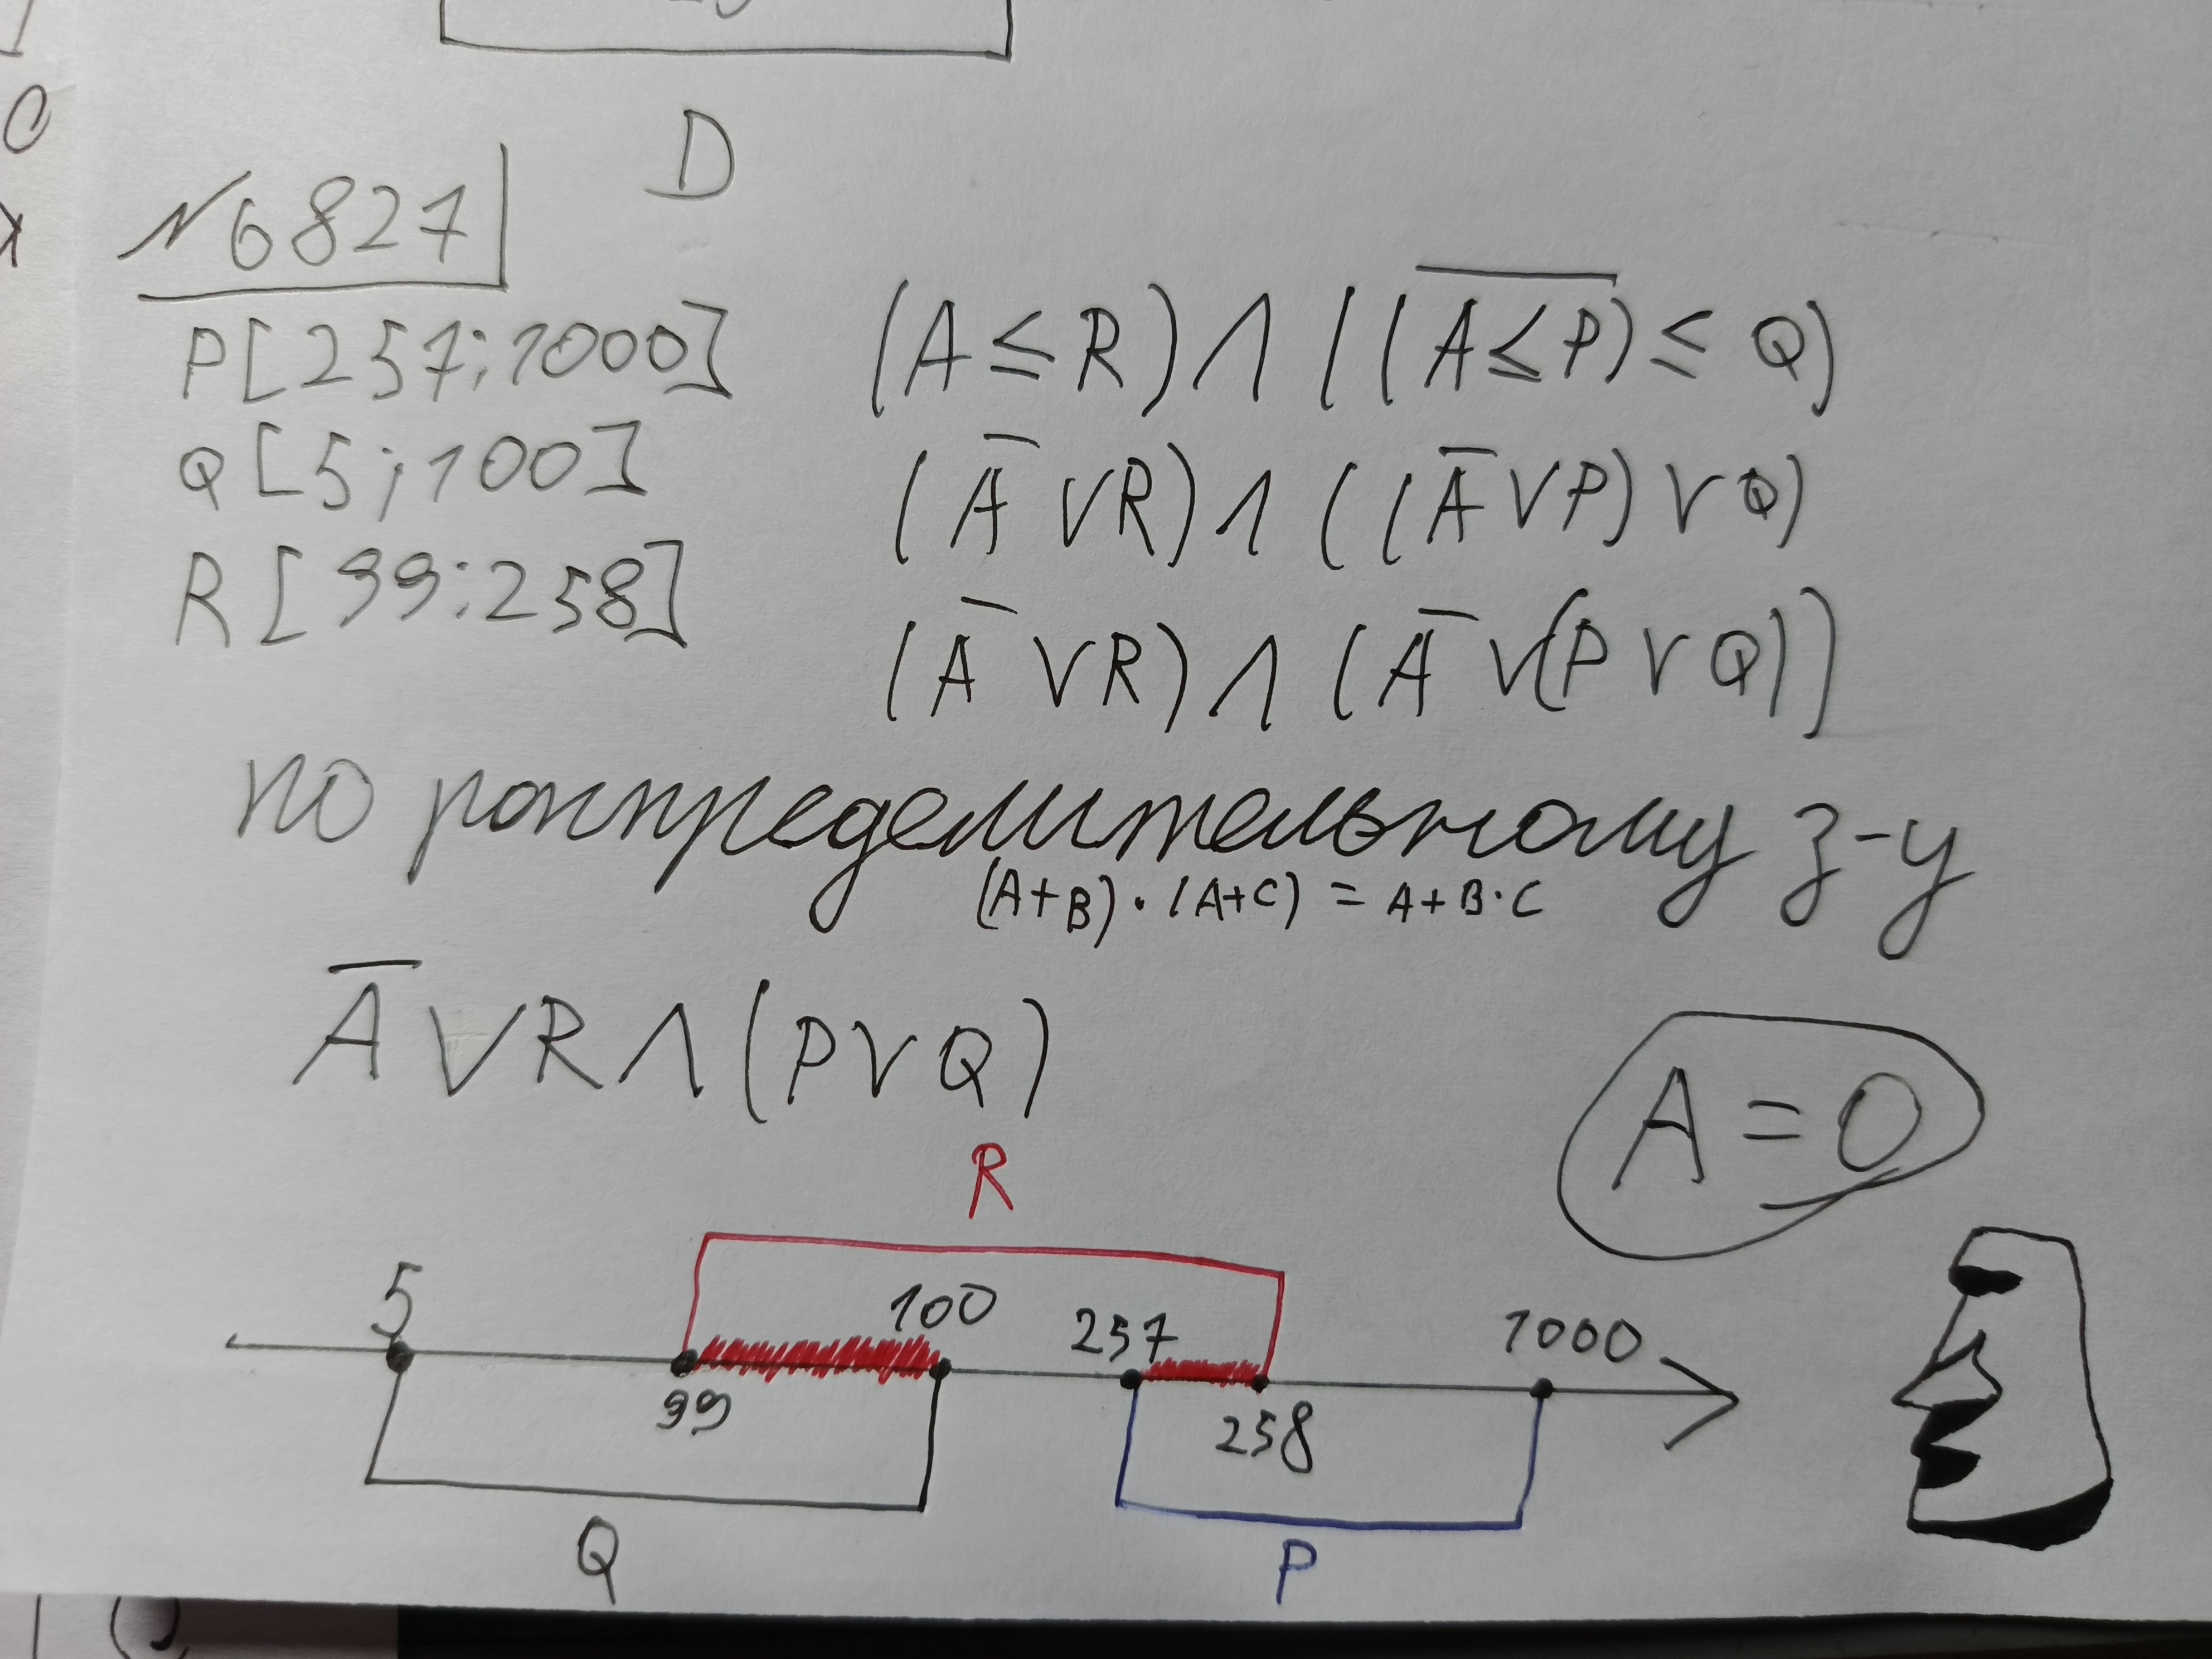 D
N6827
P[257;1000]
Q[5;100]
R[99:258]
(A ≤ R) ∧ ((\overline{A ≤ P}) ≤ Q)
(Ā ∨ R) ∧ ((Ā ∨ P) ∨ Q)
(Ā ∨ R) ∧ (Ā ∨ (P ∨ Q))
по распределительному з-у
(A+B)·(A+C) = A+B·C
Ā ∨ R ∧ (P ∨ Q)
A = 0
R
5
100
257
1000
99
258
Q
P